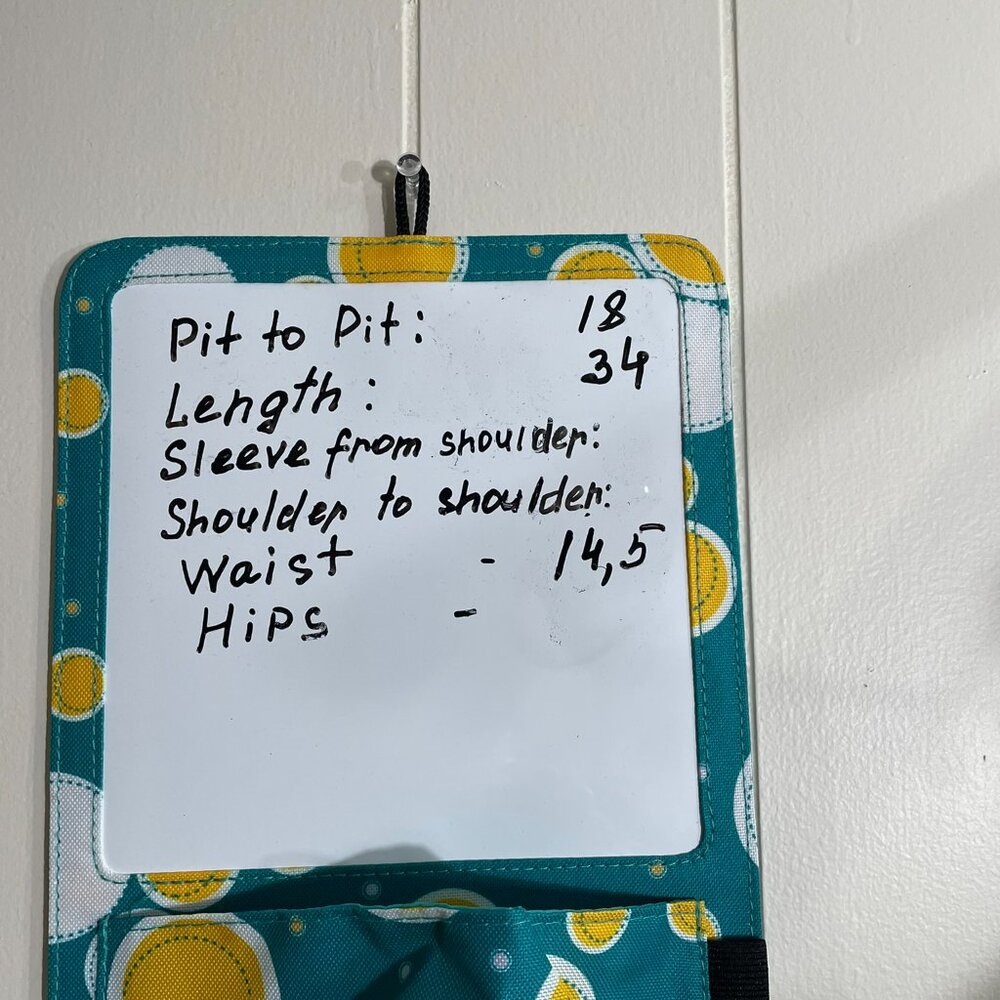 Pit to Pit: 18
Length: 34
Sleeve from shoulder:
Shoulder to shoulder:
Waist - 14,5
Hips -